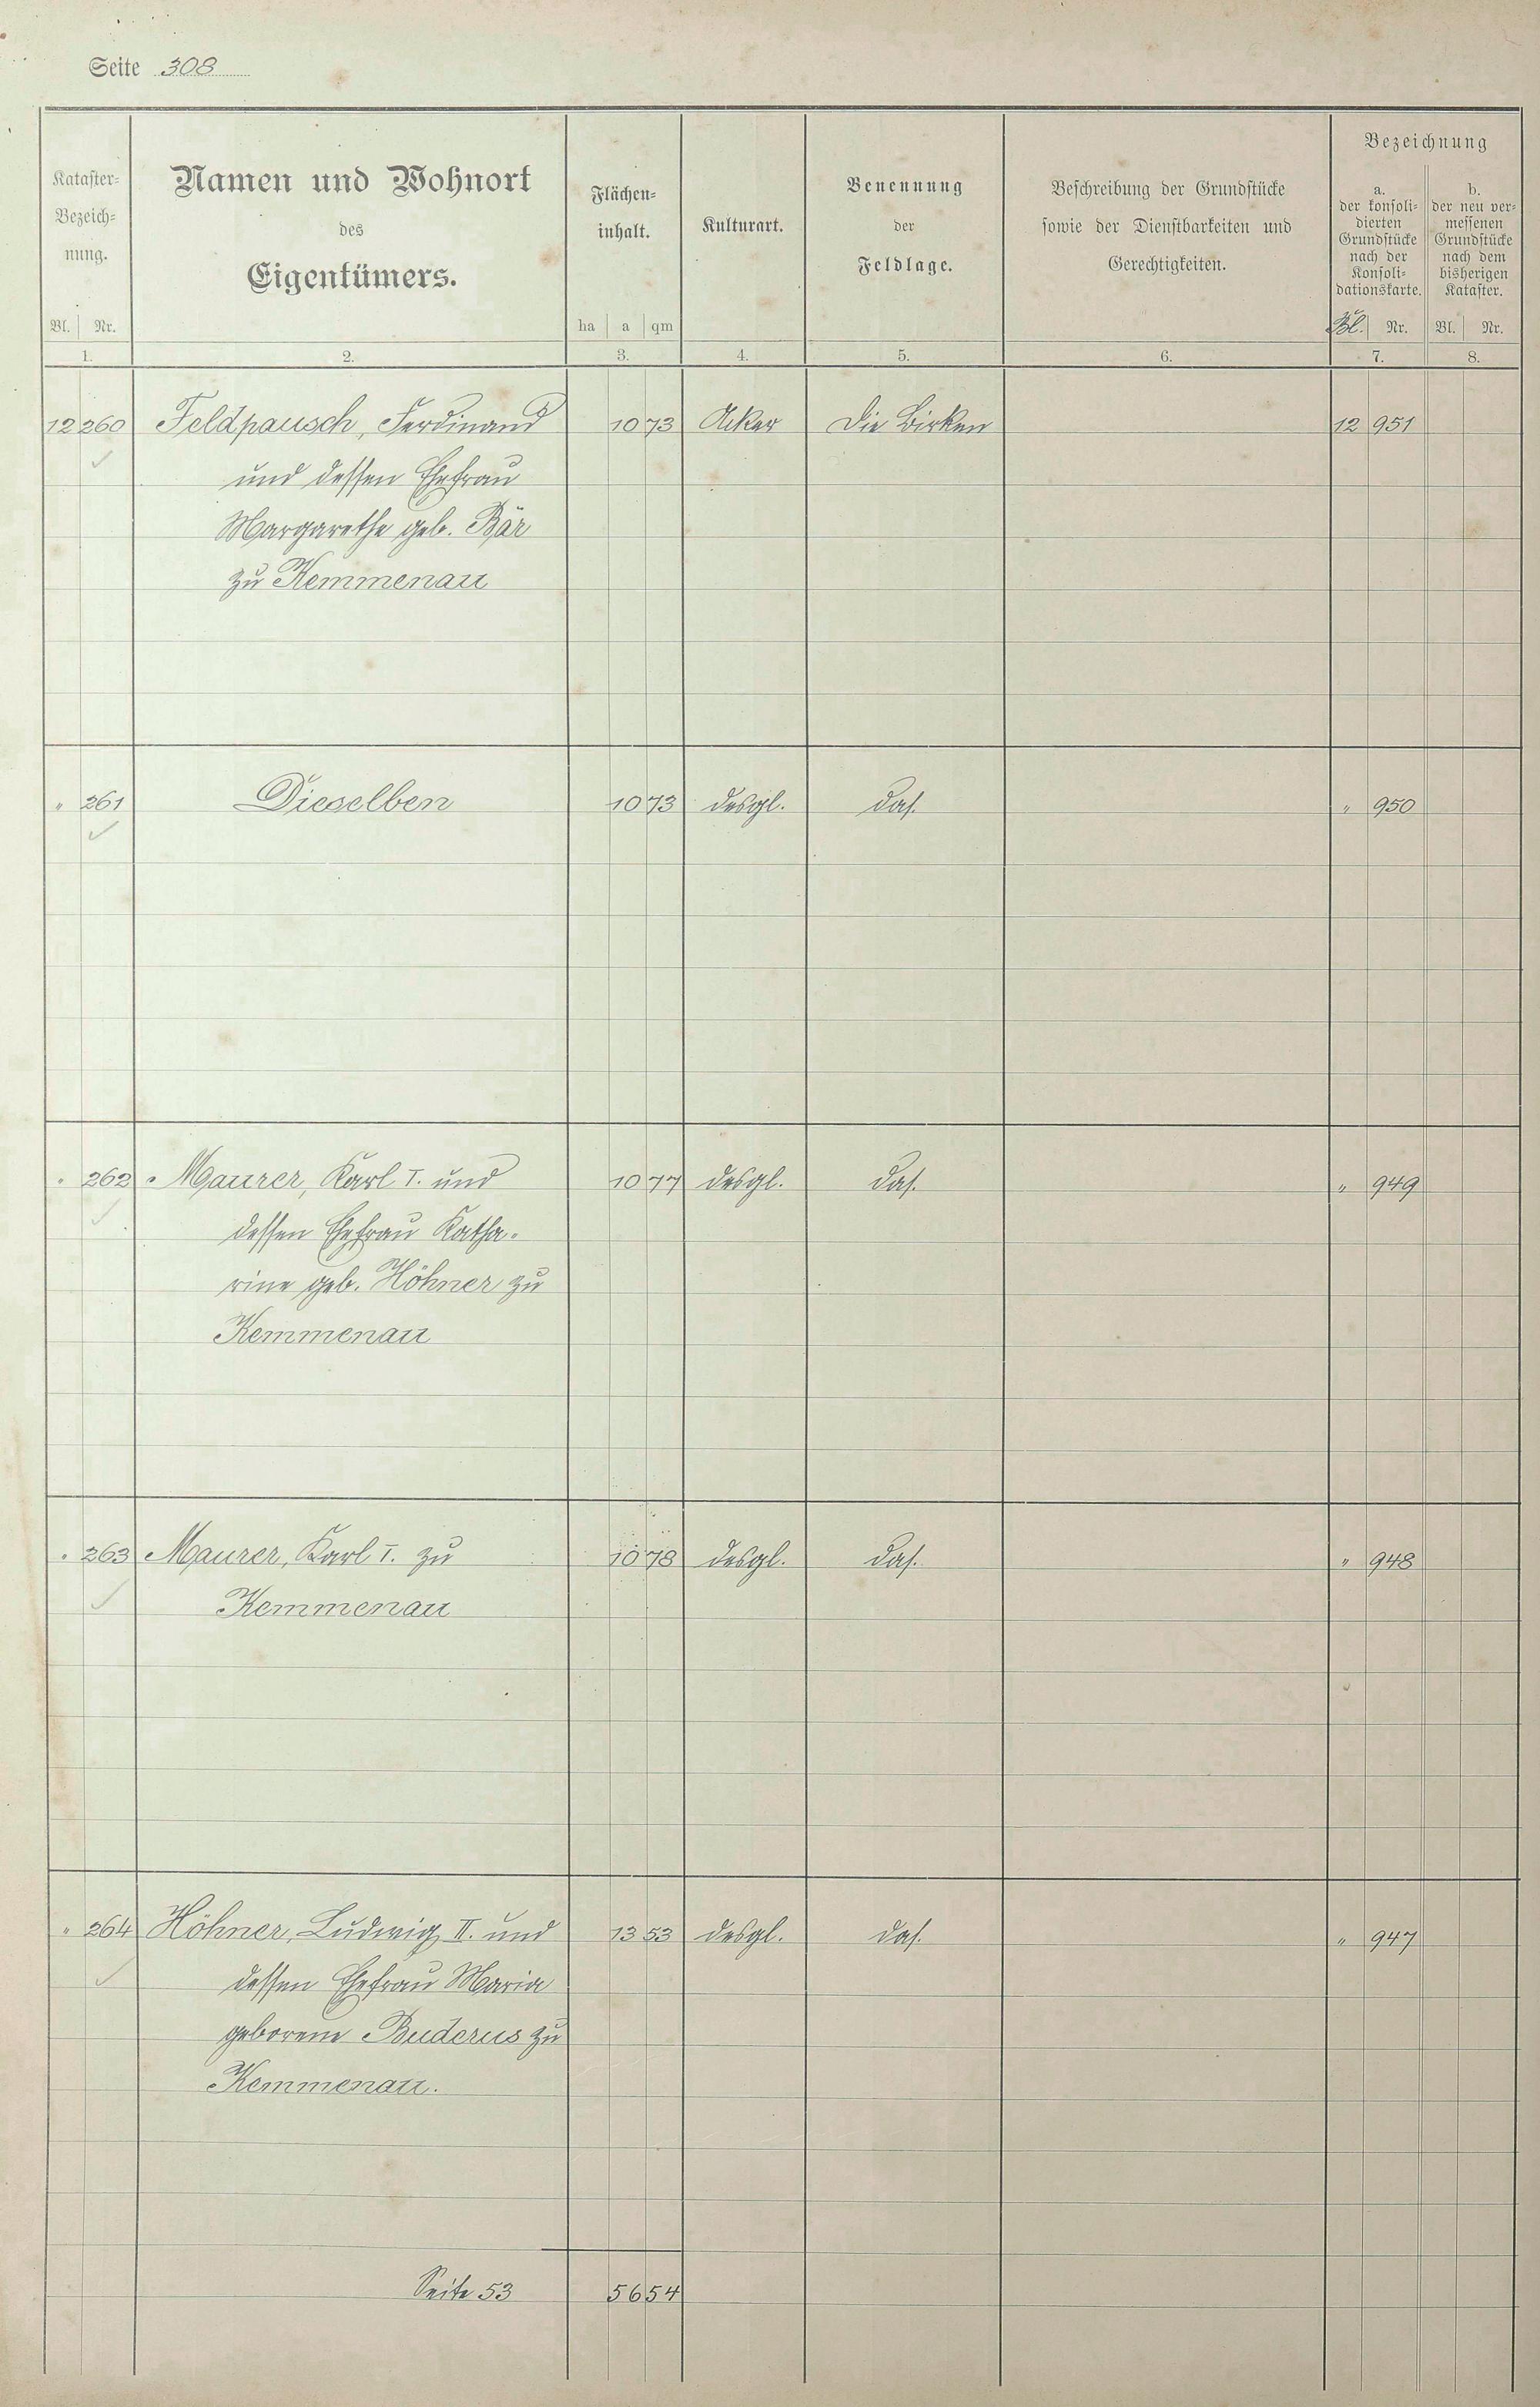 Seite 308
Kataster-
Bezeich-
nung.
Bl. Nr.
1.
Namen und Wohnort
des
Eigentümers.
2.
Flächen-
inhalt.
ha a qm
3.
Kulturart.
4.
Benennung
der
Feldlage.
5.
Beschreibung der Grundstücke
sowie der Dienstbarkeiten und
Gerechtigkeiten.
6.
Bezeichnung
a.
der konsoli-
dierten
Grundstücke
nach der
Konsoli-
dationskarte.
Bl. Nr.
7.
b.
der neu ver-
messenen
Grundstücke
nach dem
bisherigen
Kataster.
Bl. Nr.
8.
12 260 Feldpausch, Ferdinand 10 73 Acker Die Birken 12 951
und dessen Ehefrau
Margarethe geb. Bär
zu Kemmenau
" 261 Dieselben 10 73 desgl. das. " 950
" 262 Maurer, Karl I. und 10 77 desgl. das. " 949
dessen Ehefrau Katha-
rine geb. Höhner zu
Kemmenau
" 263 Maurer, Karl I. zu 10 78 desgl. das. " 948
Kemmenau
" 264 Höhner, Ludwig II. und 13 53 desgl. das. " 947
dessen Ehefrau Maria
geborene Buderus zu
Kemmenau.
Seite 53 56 54